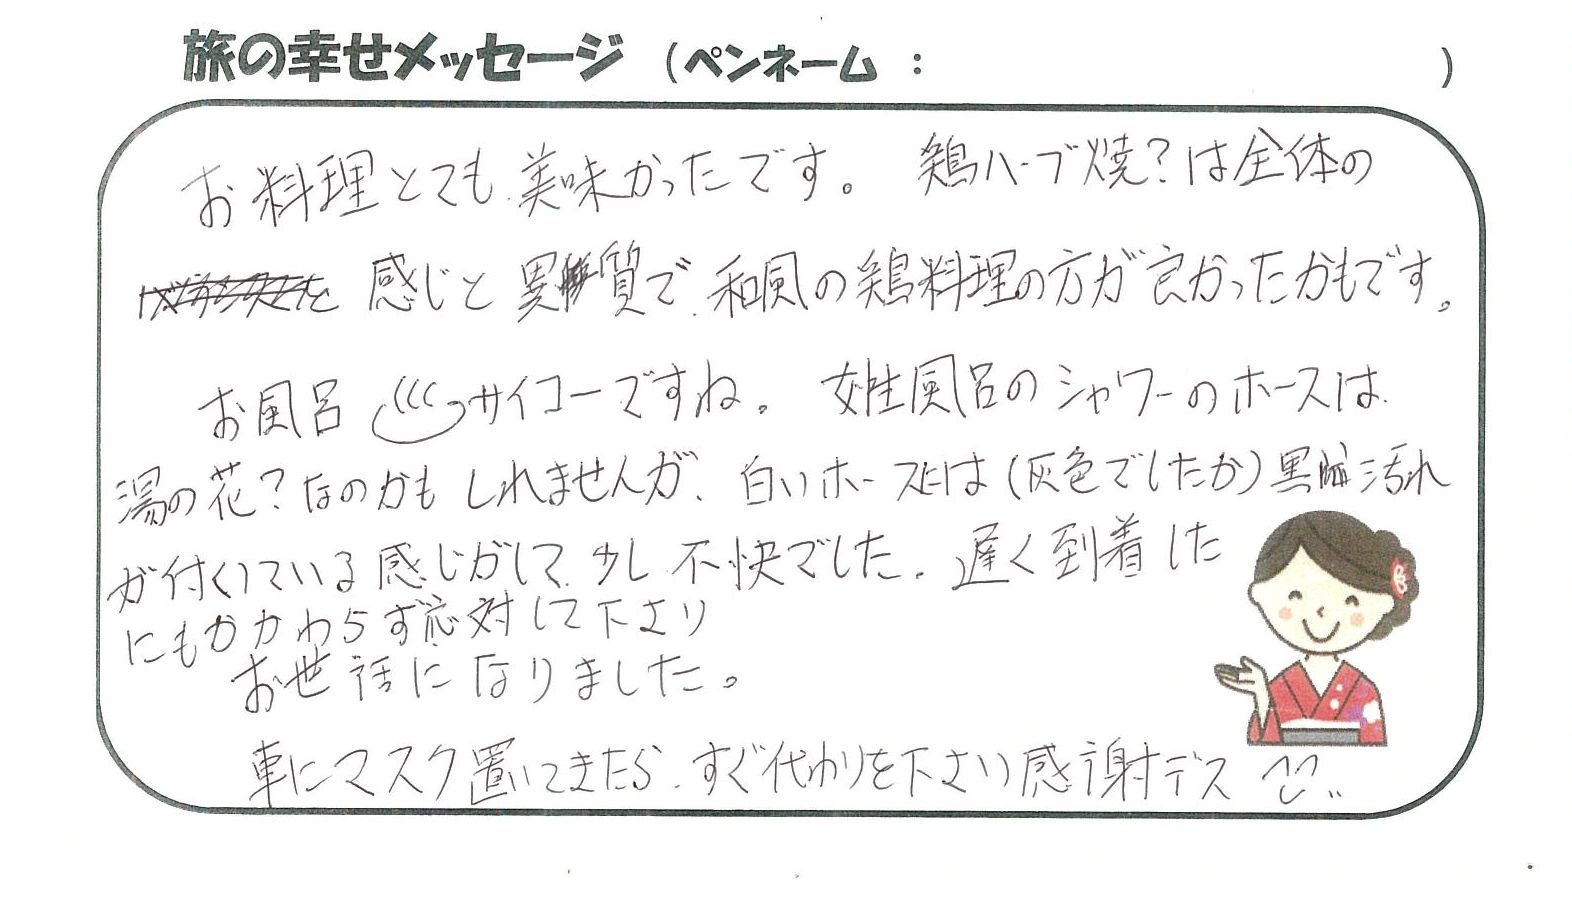 旅の幸せメッセージ (ペンネーム : )
お料理とても美味かったです。 鶏ハーブ焼?は全体の
感じと異質で、和風の鶏料理の方が良かったかもです。
お風呂サイコーですね。 女性風呂のシャワーのホースは、
湯の花?なのかもしれませんが、白いホースには(灰色でしたか)黒汚れ
が付くている感じがして、少し不快でした。遅く到着した
にもかかわらず応対して下さり
お世話になりました。
車にマスク置いてきたら、すぐ代わりを下さり感謝デス